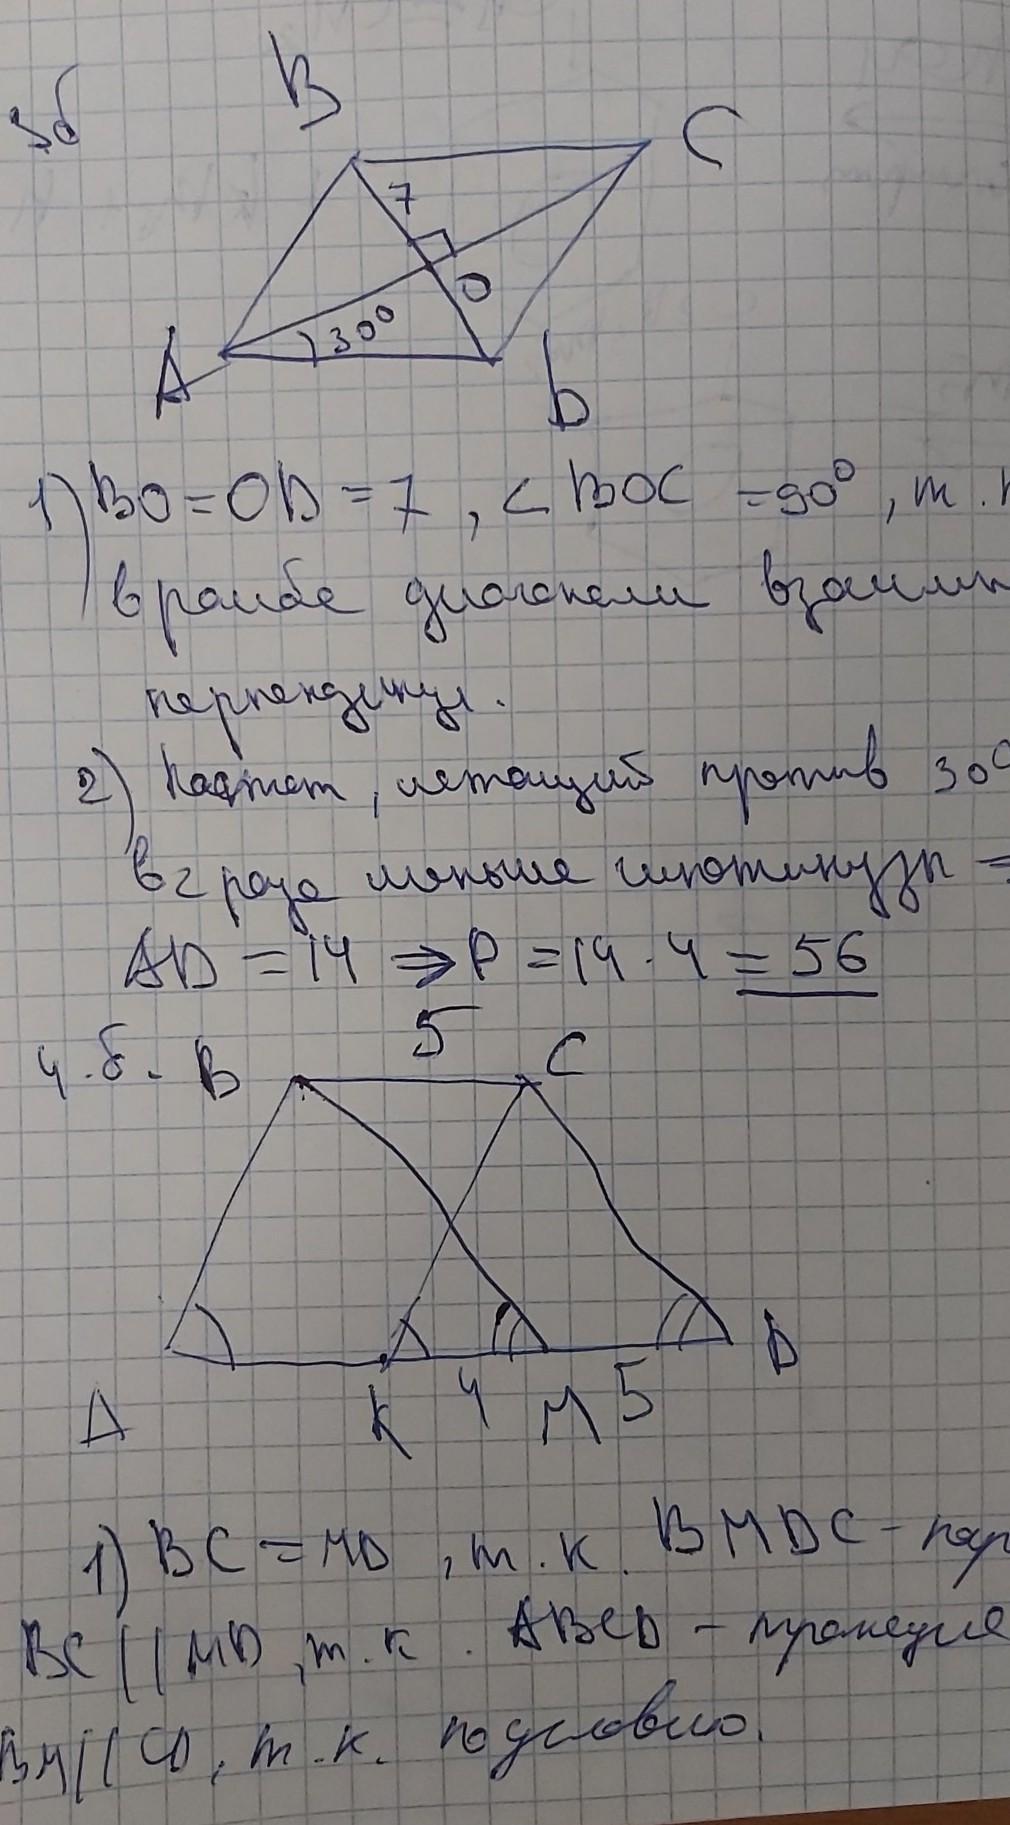 3б
B
C
7
O
30°
A
D
1) BO = OD = 7, < BOC = 90°, т.к
в ромбе диагонали взаимн
перпендикул.
2) Катет, лежащий против 30°
в 2 раза меньше гипотинузы =
AD = 14 ⇒ P = 14 · 4 = 56
4.б. B 5 C
A K 4 M 5 D
1) BC = MD, т.к. BMDC - пар
BC || MD, т.к. ABCD - трапеция
BM || CD, т.к. по условию.